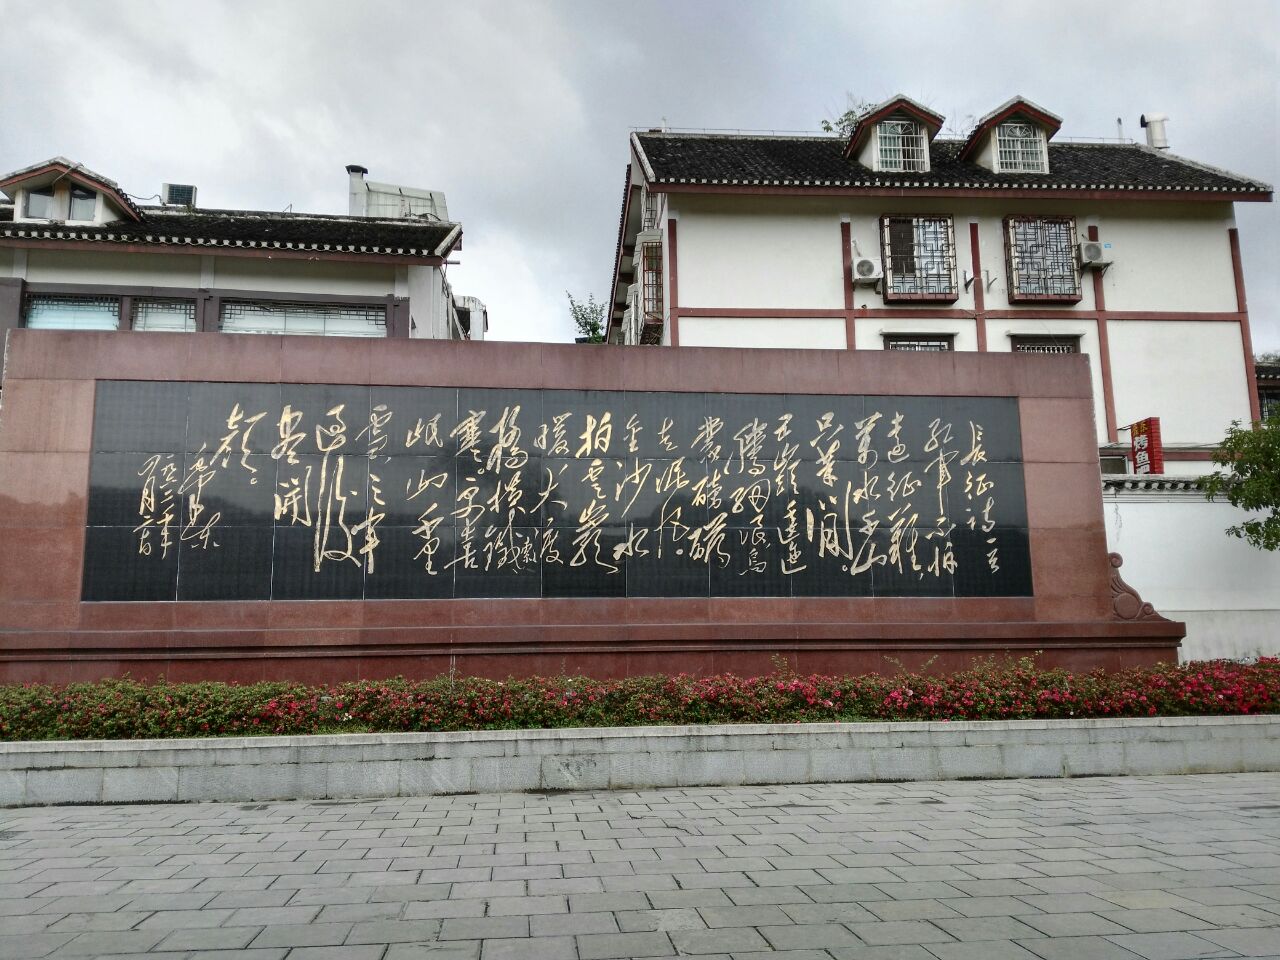 長征詩一首
紅軍不怕
遠征難,
萬水千山
只等閒。
五嶺逶迤
騰細浪,烏
蒙磅礴
走泥丸。
金沙水
拍雲巖
暖,大渡
橋橫鐵索
寒。更喜
岷山千里
雪,三軍
過後
盡開
顏。
毛澤東
一九六二年
四月二十日
烤鱼吧